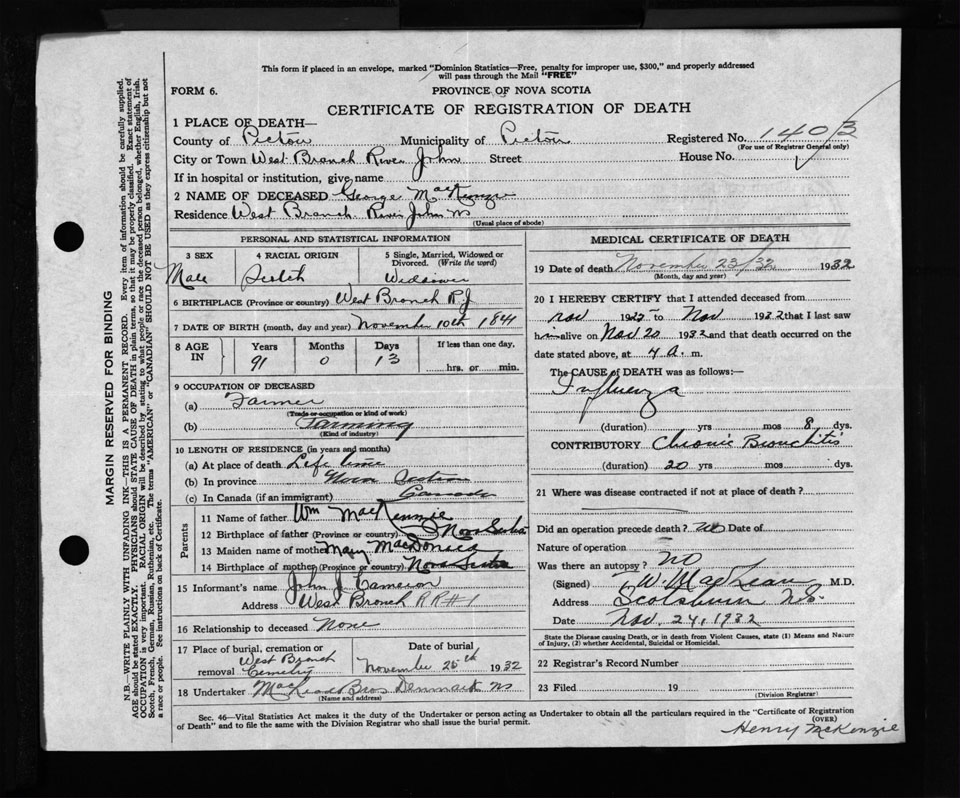 This form if placed in an envelope, marked "Dominion Statistics—Free, penalty for improper use, $300," and properly addressed
will pass through the Mail "FREE"
FORM 6.
PROVINCE OF NOVA SCOTIA
CERTIFICATE OF REGISTRATION OF DEATH
1 PLACE OF DEATH—
County of Pictou Municipality of Pictou Registered No. 1403
(For use of Registrar General only)
City or Town West Branch River John Street House No.
If in hospital or institution, give name
2 NAME OF DECEASED George MacKenzie
Residence West Branch River John NS
(Usual place of abode)
PERSONAL AND STATISTICAL INFORMATION
3 SEX 4 RACIAL ORIGIN 5 Single, Married, Widowed or Divorced. (Write the word)
Male Scotch Widower
6 BIRTHPLACE (Province or country) West Branch R.J
7 DATE OF BIRTH (month, day and year) November 10th 1841
8 AGE IN Years Months Days If less than one day,
91 0 13 hrs. or min.
9 OCCUPATION OF DECEASED
(a) Farmer
(Trade or occupation or kind of work)
(b) Farming
(Kind of industry)
10 LENGTH OF RESIDENCE (in years and months)
(a) At place of death Life time
(b) In province Nova Scotia
(c) In Canada (if an immigrant) Canada
Parents
11 Name of father Wm MacKennie
12 Birthplace of father (Province or country) Nova Scotia
13 Maiden name of mother Mary MacDonald
14 Birthplace of mother (Province or country) Nova Scotia
15 Informant's name John J Cameron
Address West Branch RR#1
16 Relationship to deceased None
17 Place of burial, cremation or removal West Branch Cemetery
Date of burial
November 25th 1932
18 Undertaker MacLeod Bros Denmark NS
(Name and address)
MEDICAL CERTIFICATE OF DEATH
19 Date of death November 23/32 1932
(Month, day and year)
20 I HEREBY CERTIFY that I attended deceased from
Nov 1927 to Nov 1932 that I last saw
him alive on Nov 20 1932 and that death occurred on
date stated above, at 4 a. m.
The CAUSE OF DEATH was as follows:—
Influenza
(duration) yrs mos 8 dys.
CONTRIBUTORY Chronic Bronchitis
(duration) 20 yrs mos dys.
21 Where was disease contracted if not at place of death?
Did an operation precede death? no Date of
Nature of operation
Was there an autopsy? NO
(Signed) W. MacLean M.D.
Address Scotsburn N.S.
Date Nov. 24, 1932
State the Disease causing Death, or in death from Violent Causes, state (1) Means and Nature
of Injury, (2) whether Accidental, Suicidal or Homicidal.
22 Registrar's Record Number
23 Filed 19
(Division Registrar)
Sec. 46—Vital Statistics Act makes it the duty of the Undertaker or person acting as Undertaker to obtain all the particulars required in the "Certificate of Registration
of Death" and to file the same with the Division Registrar who shall issue the burial permit.
(OVER)
Henry McKenzie
MARGIN RESERVED FOR BINDING
N.B.—WRITE PLAINLY WITH UNFADING INK—THIS IS A PERMANENT RECORD. Every item of information should be carefully supplied.
AGE should be stated EXACTLY. PHYSICIANS should STATE CAUSE OF DEATH in plain terms, so that it may be properly classified. Exact statement of
OCCUPATION is very important. RACIAL ORIGIN will be described by stating to what people or race the deceased person belonged, whether English, Irish,
Scotch, French, German, Russian, Ruthenian, etc. The terms "AMERICAN" or "CANADIAN" SHOULD NOT BE USED as they express citizenship but not
a race or people. See instructions on back of Certificate.